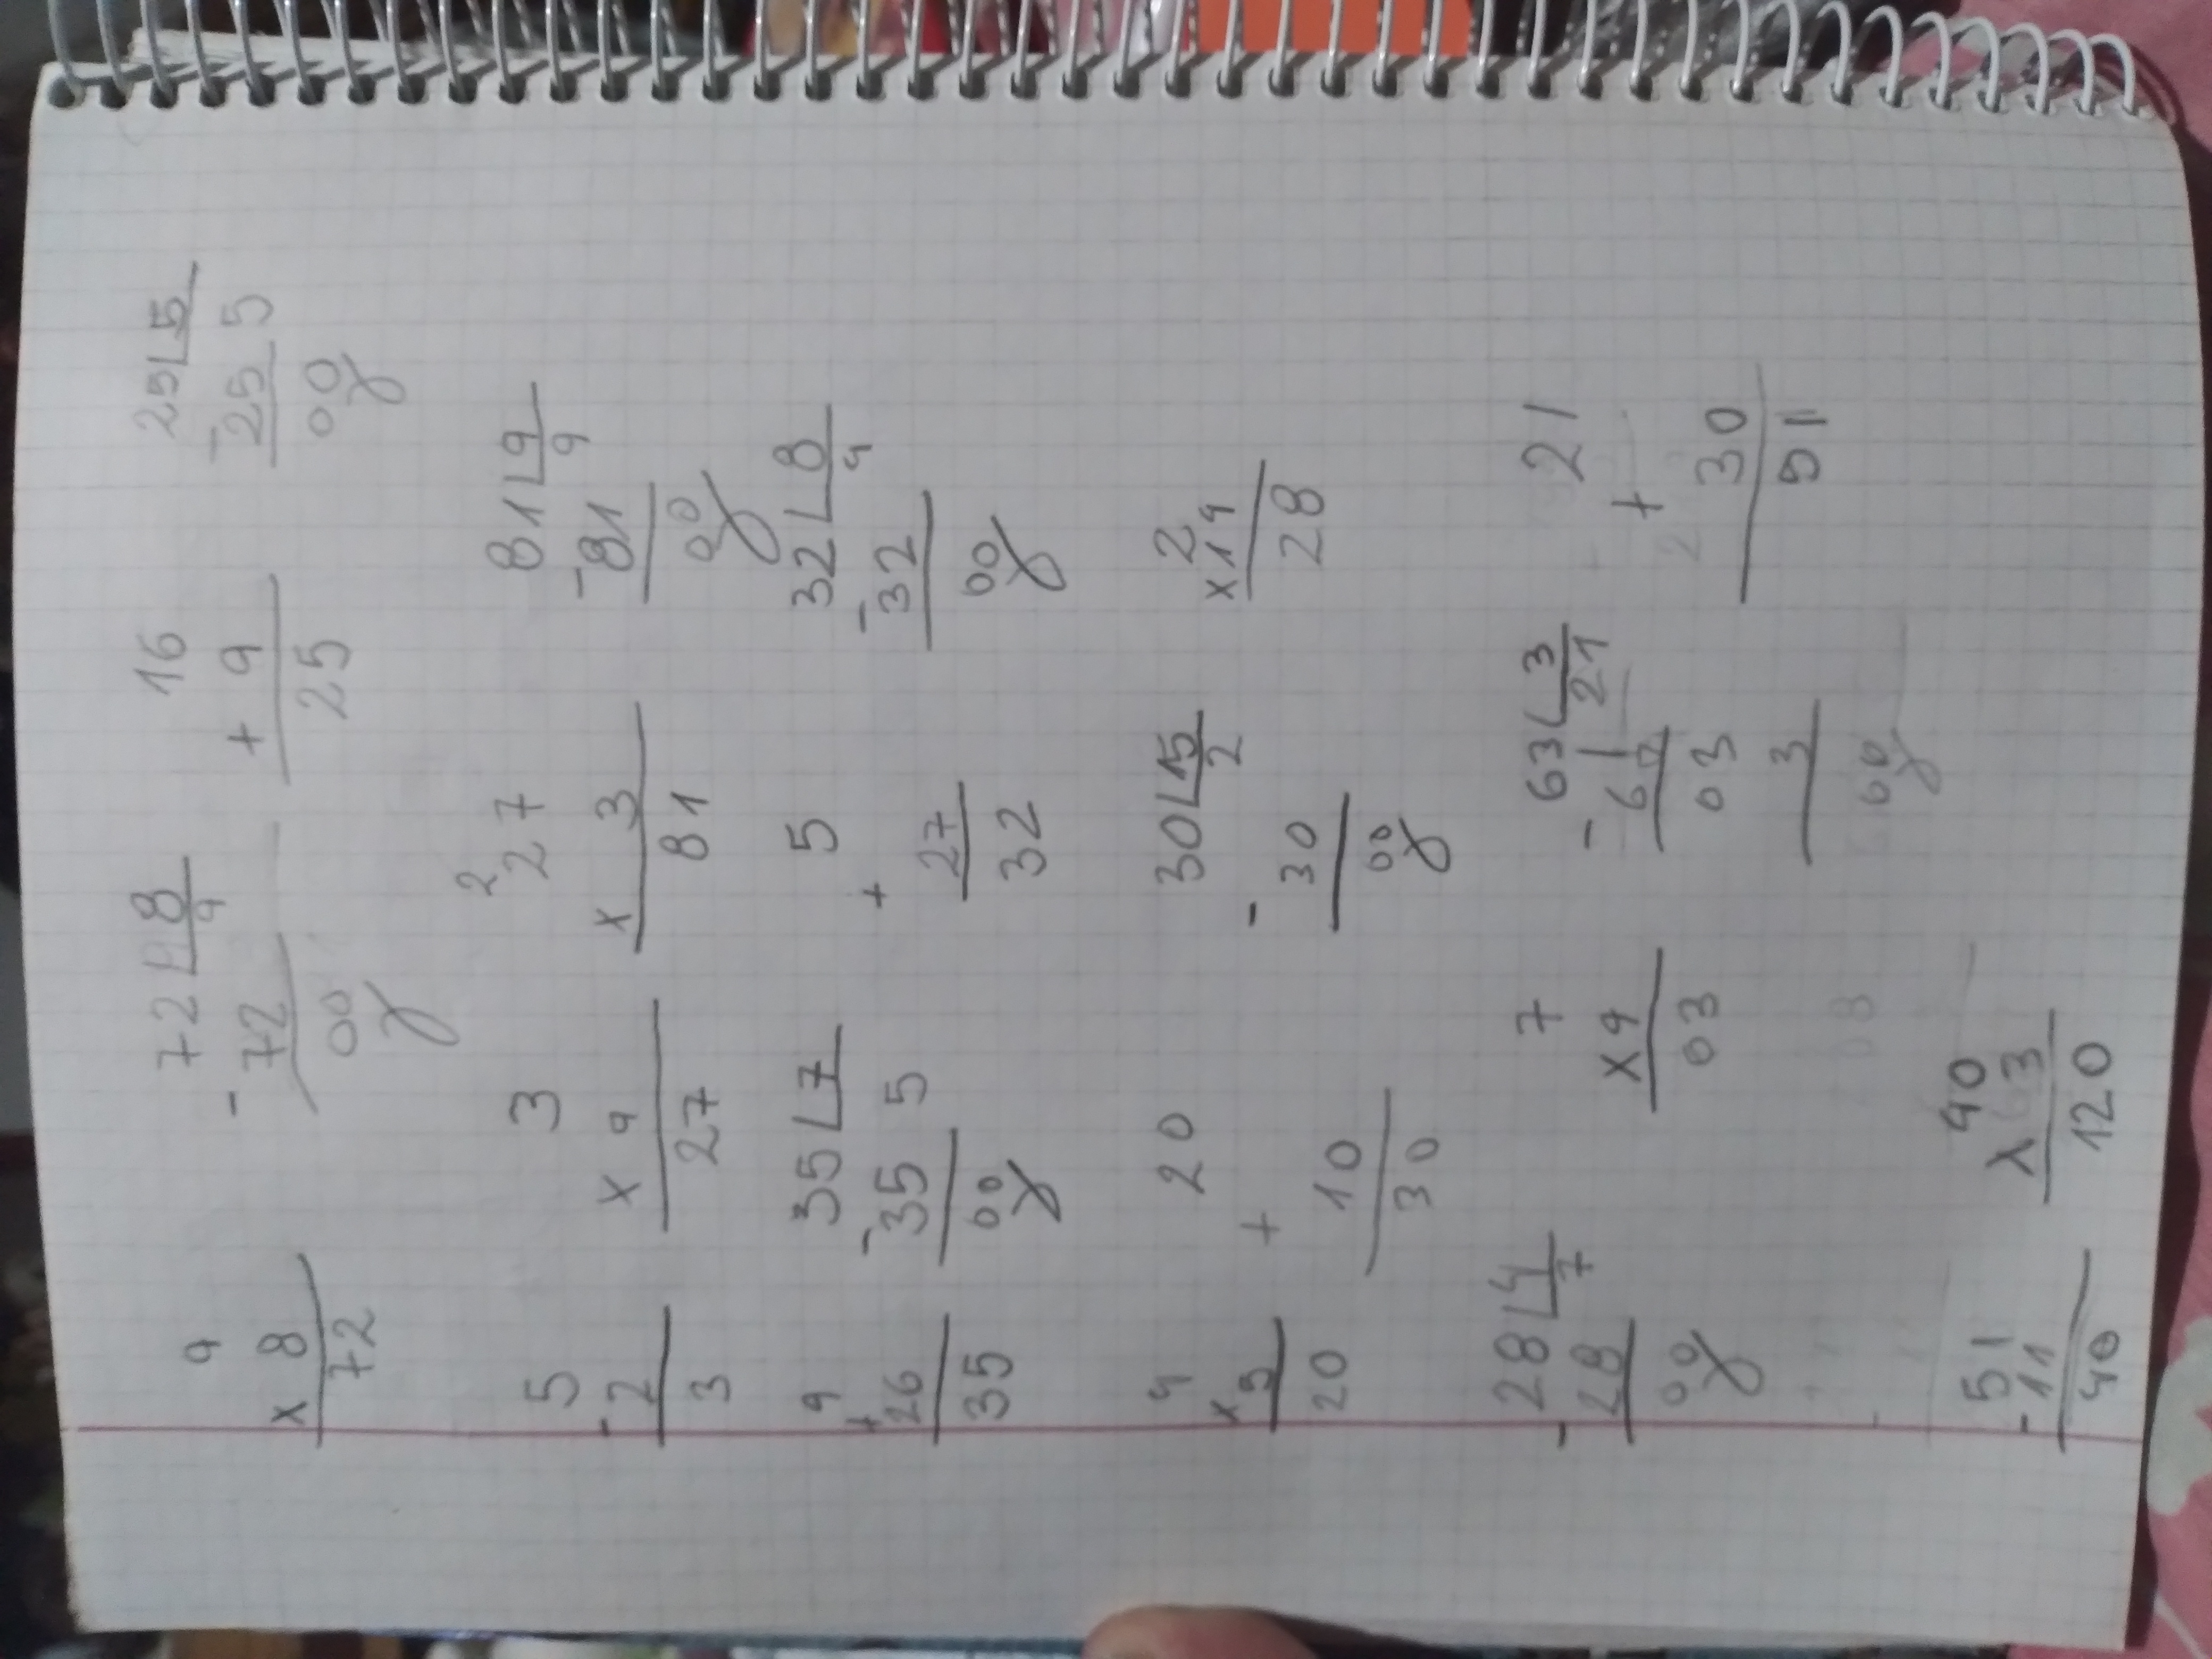 9 72 L8 16 25 L5
x 8 - 72 9 + 9 - 25 5
72 00 25 00
5 3 2
27 81 L9
- 2 x 9 x 3 - 81 9
3 27 81 00
9 35 L7 5 32 L8
+ 26 - 35 5 + 27 - 32 4
35 00 32 00
4 20 30 L15 2
x 5 + 10 - 30 2 x 14
20 30 00 28
28 L4 7 63 L3 21
- 28 7 x 9 - 6 21 + 30
00 03 03 51
3
00
51 40
- 11 x 3
40 120